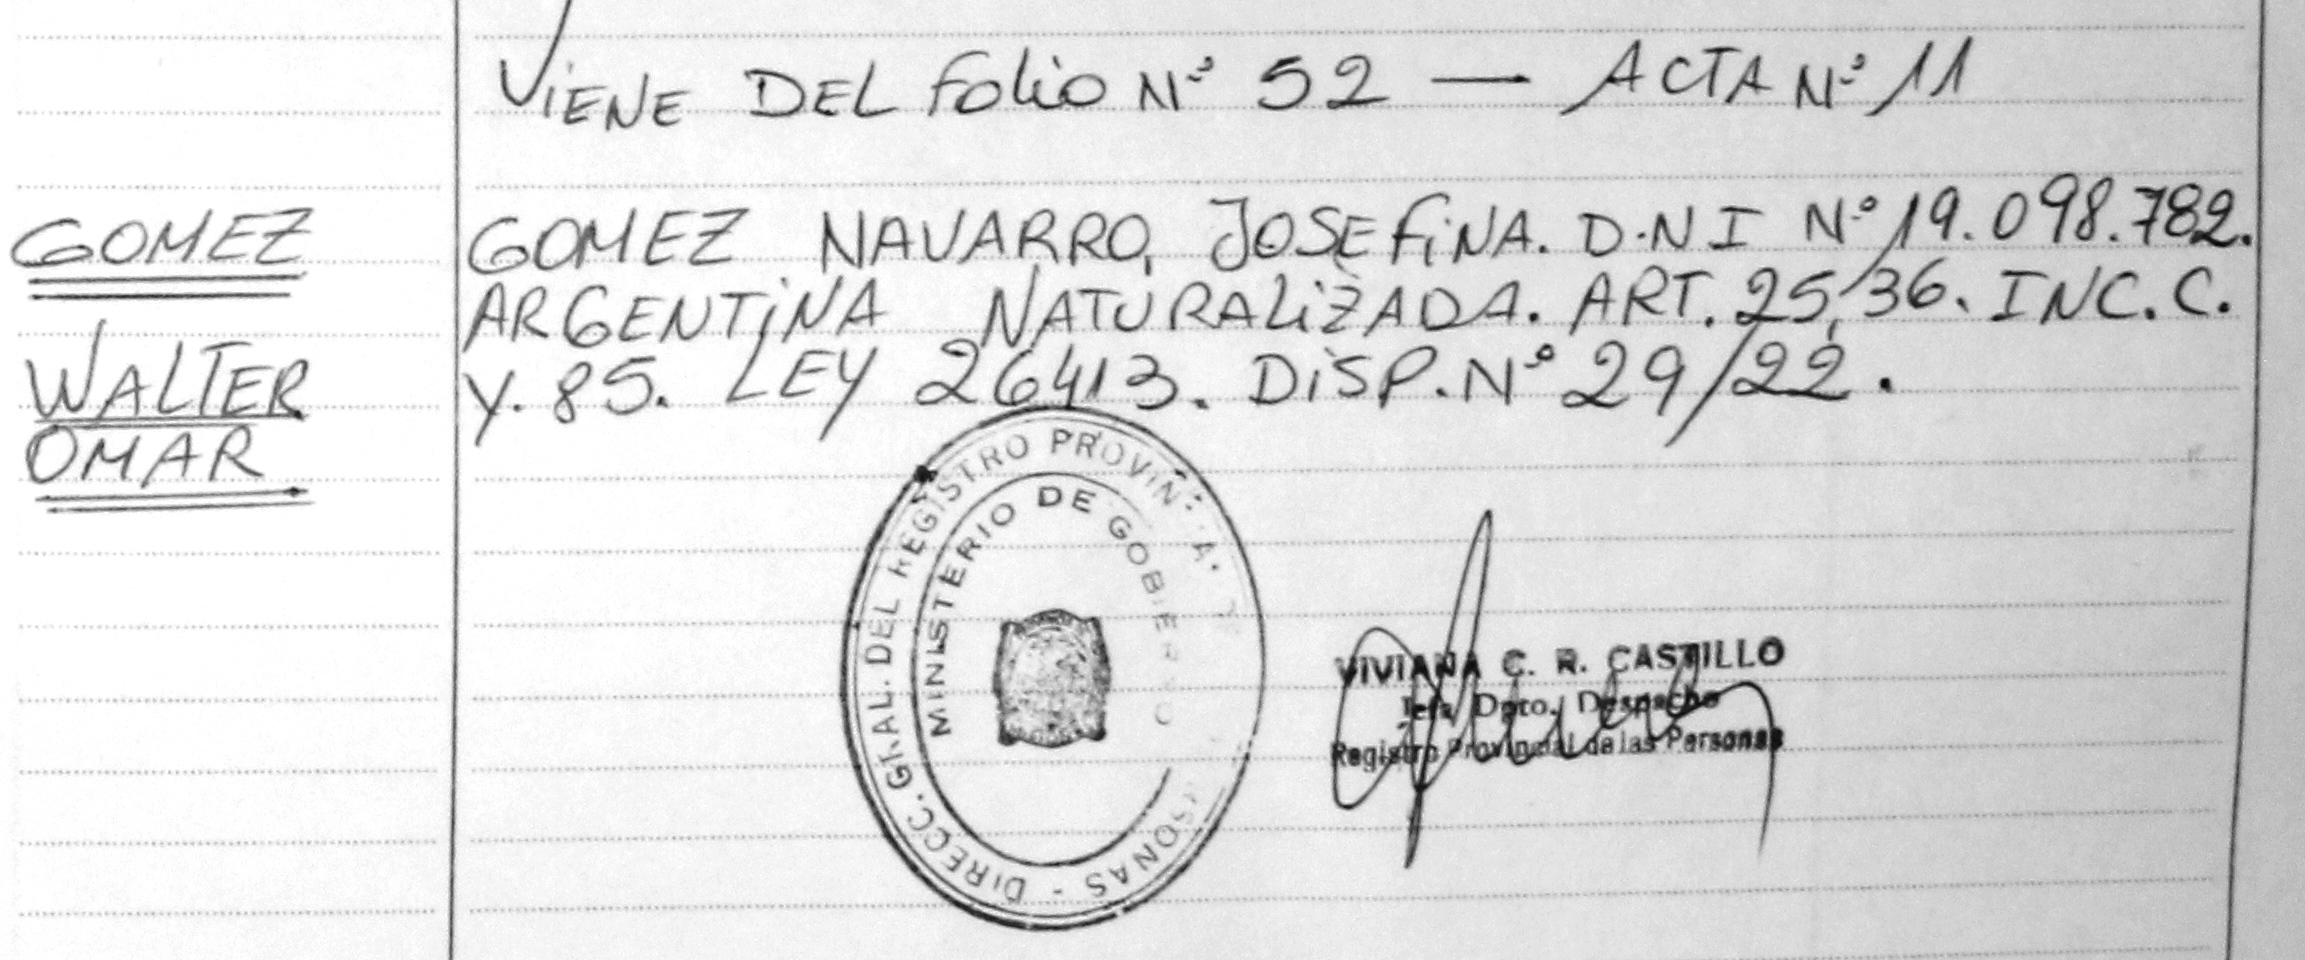 VIENE DEL FOLIO Nº 52 — ACTA Nº 11
GOMEZ
WALTER
OMAR
GOMEZ NAVARRO, JOSEFINA. D.N I Nº 19.098.782.
ARGENTINA NATURALIZADA. ART. 25, 36. INC. C.
Y. 85. LEY 26413. DISP. Nº 29/22.
DIRECC. GRAL. DEL REGISTRO
MINISTERIO DE GOBIERNO
VIVIANA C. R. CASTILLO
Jefa Dpto. Despacho
Registro Provincial de las Personas